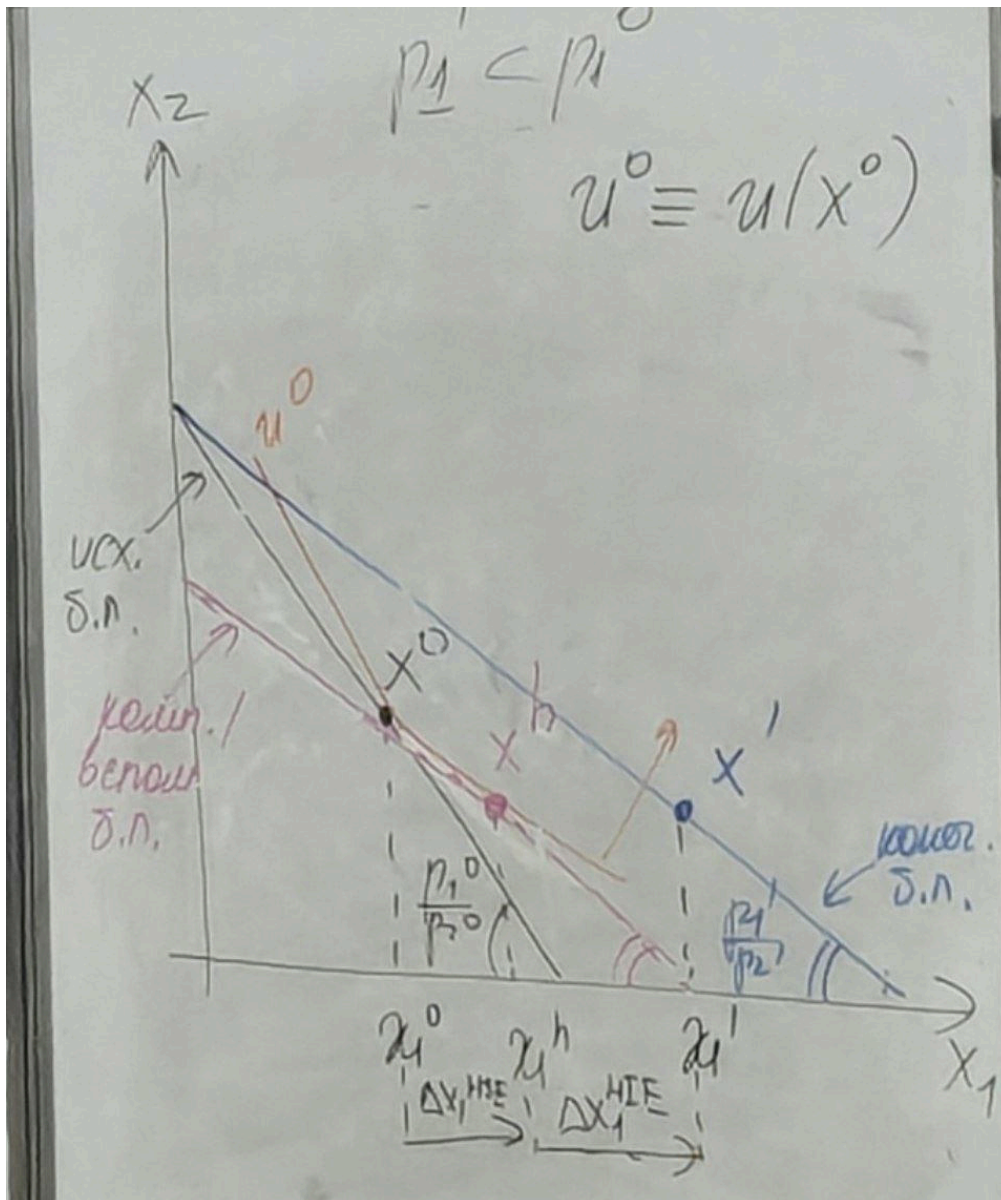 p₁' < p₁⁰
x₂
u⁰ ≡ u(x⁰)
u⁰
исх.
б.л.
x⁰
комп./
вспом.
б.л.
xʰ
x'
конеч.
б.л.
p₁⁰/p₂⁰
p₁'/p₂'
x₁⁰
x₁ʰ
x₁'
x₁
Δx₁ᴴˢᴱ
Δx₁ᴴᴵᴱ